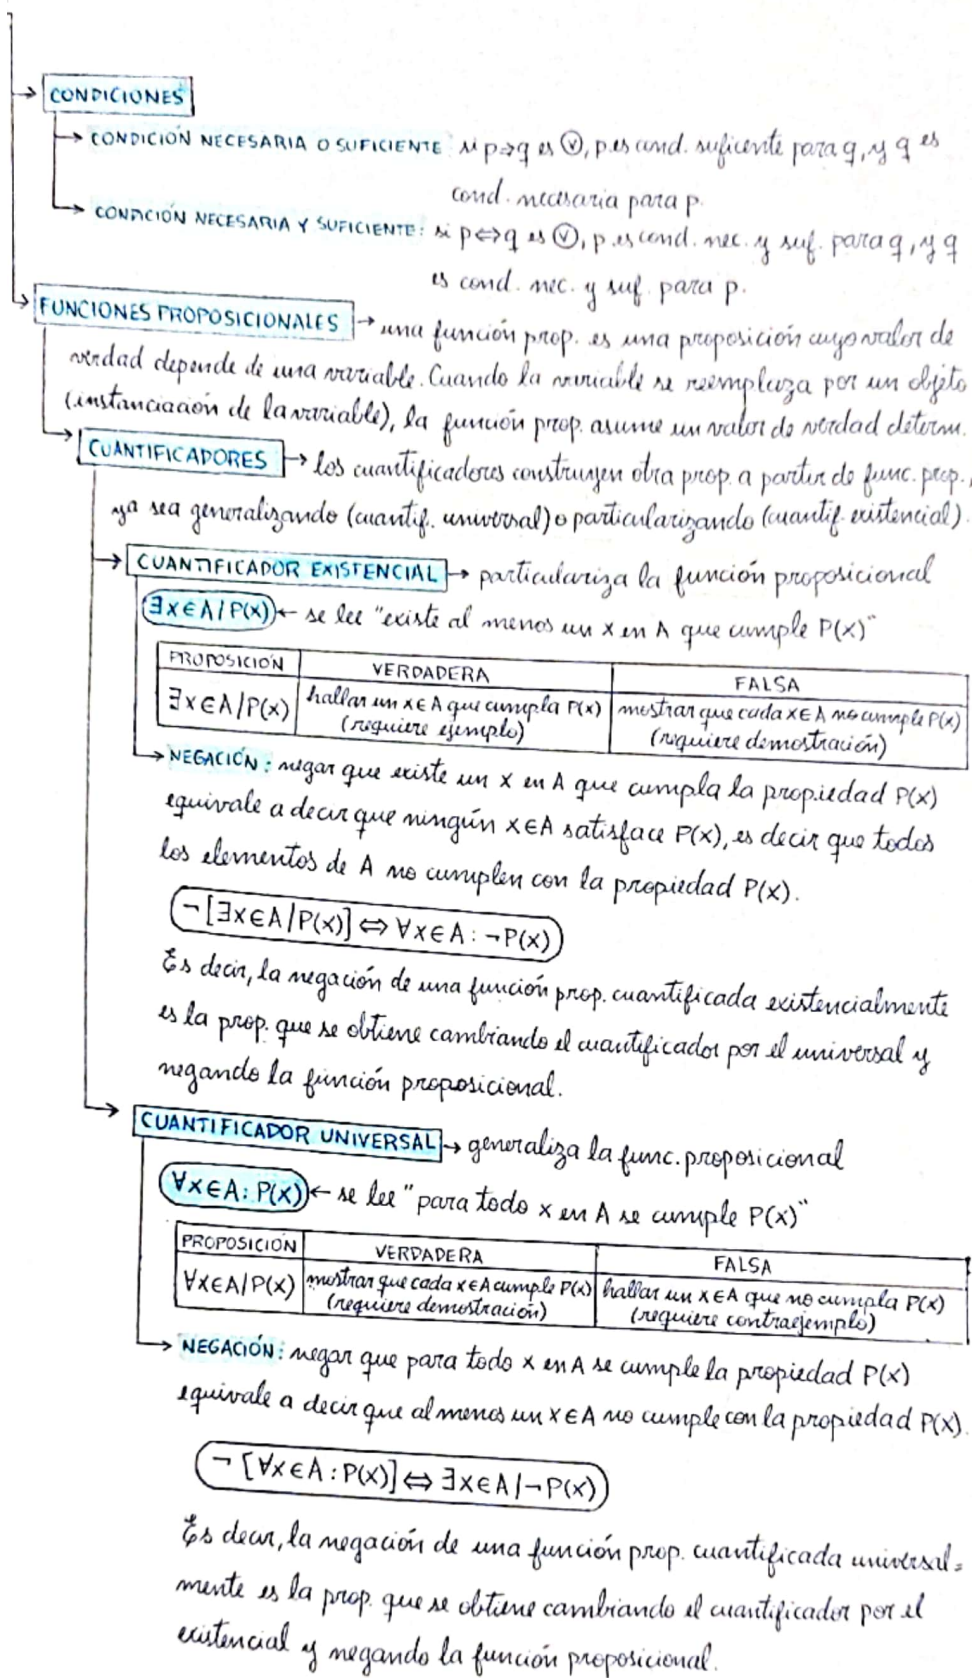 CONDICIONES
CONDICIÓN NECESARIA O SUFICIENTE: si p⇒q es Ⓥ, p es cond. suficiente para q, y q es
cond. necesaria para p.
CONDICIÓN NECESARIA Y SUFICIENTE: si p⇔q es Ⓥ, p es cond. nec. y suf. para q, y q
es cond. nec. y suf. para p.
FUNCIONES PROPOSICIONALES → una función prop. es una proposición cuyo valor de
verdad depende de una variable. Cuando la variable se reemplaza por un objeto
(instanciación de la variable), la función prop. asume un valor de verdad determ.
CUANTIFICADORES → los cuantificadores construyen otra prop. a partir de func. prop.,
ya sea generalizando (cuantif. universal) o particularizando (cuantif. existencial).
CUANTIFICADOR EXISTENCIAL → particulariza la función proposicional
∃x∈A/P(x) ← se lee "existe al menos un x en A que cumple P(x)"
PROPOSICIÓN VERDADERA FALSA
∃x∈A/P(x) hallar un x∈A que cumpla P(x) mostrar que cada x∈A no cumple P(x)
(requiere ejemplo) (requiere demostración)
NEGACIÓN: negar que existe un x en A que cumpla la propiedad P(x)
equivale a decir que ningún x∈A satisface P(x), es decir que todos
los elementos de A no cumplen con la propiedad P(x).
¬[∃x∈A/P(x)] ⇔ ∀x∈A: ¬P(x)
Es decir, la negación de una función prop. cuantificada existencialmente
es la prop. que se obtiene cambiando el cuantificador por el universal y
negando la función proposicional.
CUANTIFICADOR UNIVERSAL → generaliza la func. proposicional
∀x∈A: P(x) ← se lee "para todo x en A se cumple P(x)"
PROPOSICIÓN VERDADERA FALSA
∀x∈A/P(x) mostrar que cada x∈A cumple P(x) hallar un x∈A que no cumpla P(x)
(requiere demostración) (requiere contraejemplo)
NEGACIÓN: negar que para todo x en A se cumple la propiedad P(x)
equivale a decir que al menos un x∈A no cumple con la propiedad P(x).
¬[∀x∈A: P(x)] ⇔ ∃x∈A/¬P(x)
Es decir, la negación de una función prop. cuantificada universal-
mente es la prop. que se obtiene cambiando el cuantificador por el
existencial y negando la función proposicional.